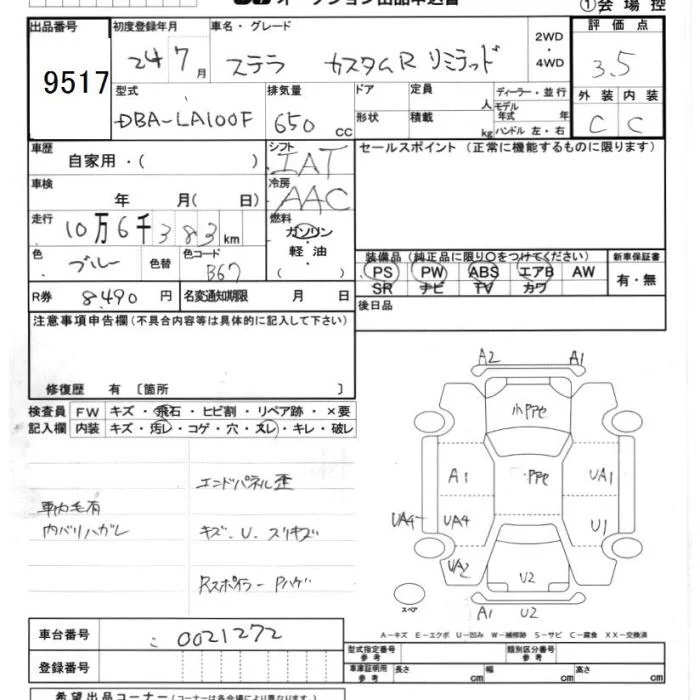 オークション出品申込書
①会場控
出品番号 9517
初度登録年月 24 7月
車名・グレード ステラ カスタムR リミテッド
2WD・4WD
評価点 3.5
型式 DBA-LA100F
排気量 650 cc
ドア 形状
定員 人
積載 kg
ディーラー・並行
モデル年式 年
ハンドル 左・右
外装 C
内装 C
車歴 自家用・( )
シフト IAT
セールスポイント(正常に機能するものに限ります)
車検 年 月( 日)
冷房 AAC
走行 10万6千383km
燃料 ガソリン・軽油・( )
色 ブルー 色替
色コード B67
装備品(純正品に限り○をつけてください)
PS PW ABS エアB AW
SR ナビ TV カワ
新車保証書 有・無
R券 8,490円
名変通知期限 月 日
後日品
注意事項申告欄(不具合内容等は具体的に記入して下さい)
修復歴 有〔箇所 〕
検査員記入欄
FW キズ・飛石・ヒビ割・リペア跡・×要
内装 キズ・汚レ・コゲ・穴・スレ・キレ・破レ
エンドパネル歪
車内毛有
内バリハガレ
キズ・U・スリキズ
Rスポイラー Pハゲ
A2 A1
小PPe
A1 PPe UA1
UA4 UA4 U1
UA2 U2
スペア A1 U2
A-キズ E-エクボ U-凹み W-補修跡 S-サビ C-腐食 XX-交換済
車台番号 0021272
登録番号
型式指定番号 参考
類別区分番号 参考
車庫証明用 参考 長さ cm 幅 cm 高さ cm
希望出品コーナー(コーナーは各会場により異なります)